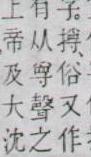 子。
俗又作
有从尊聲之
上帝及大沈